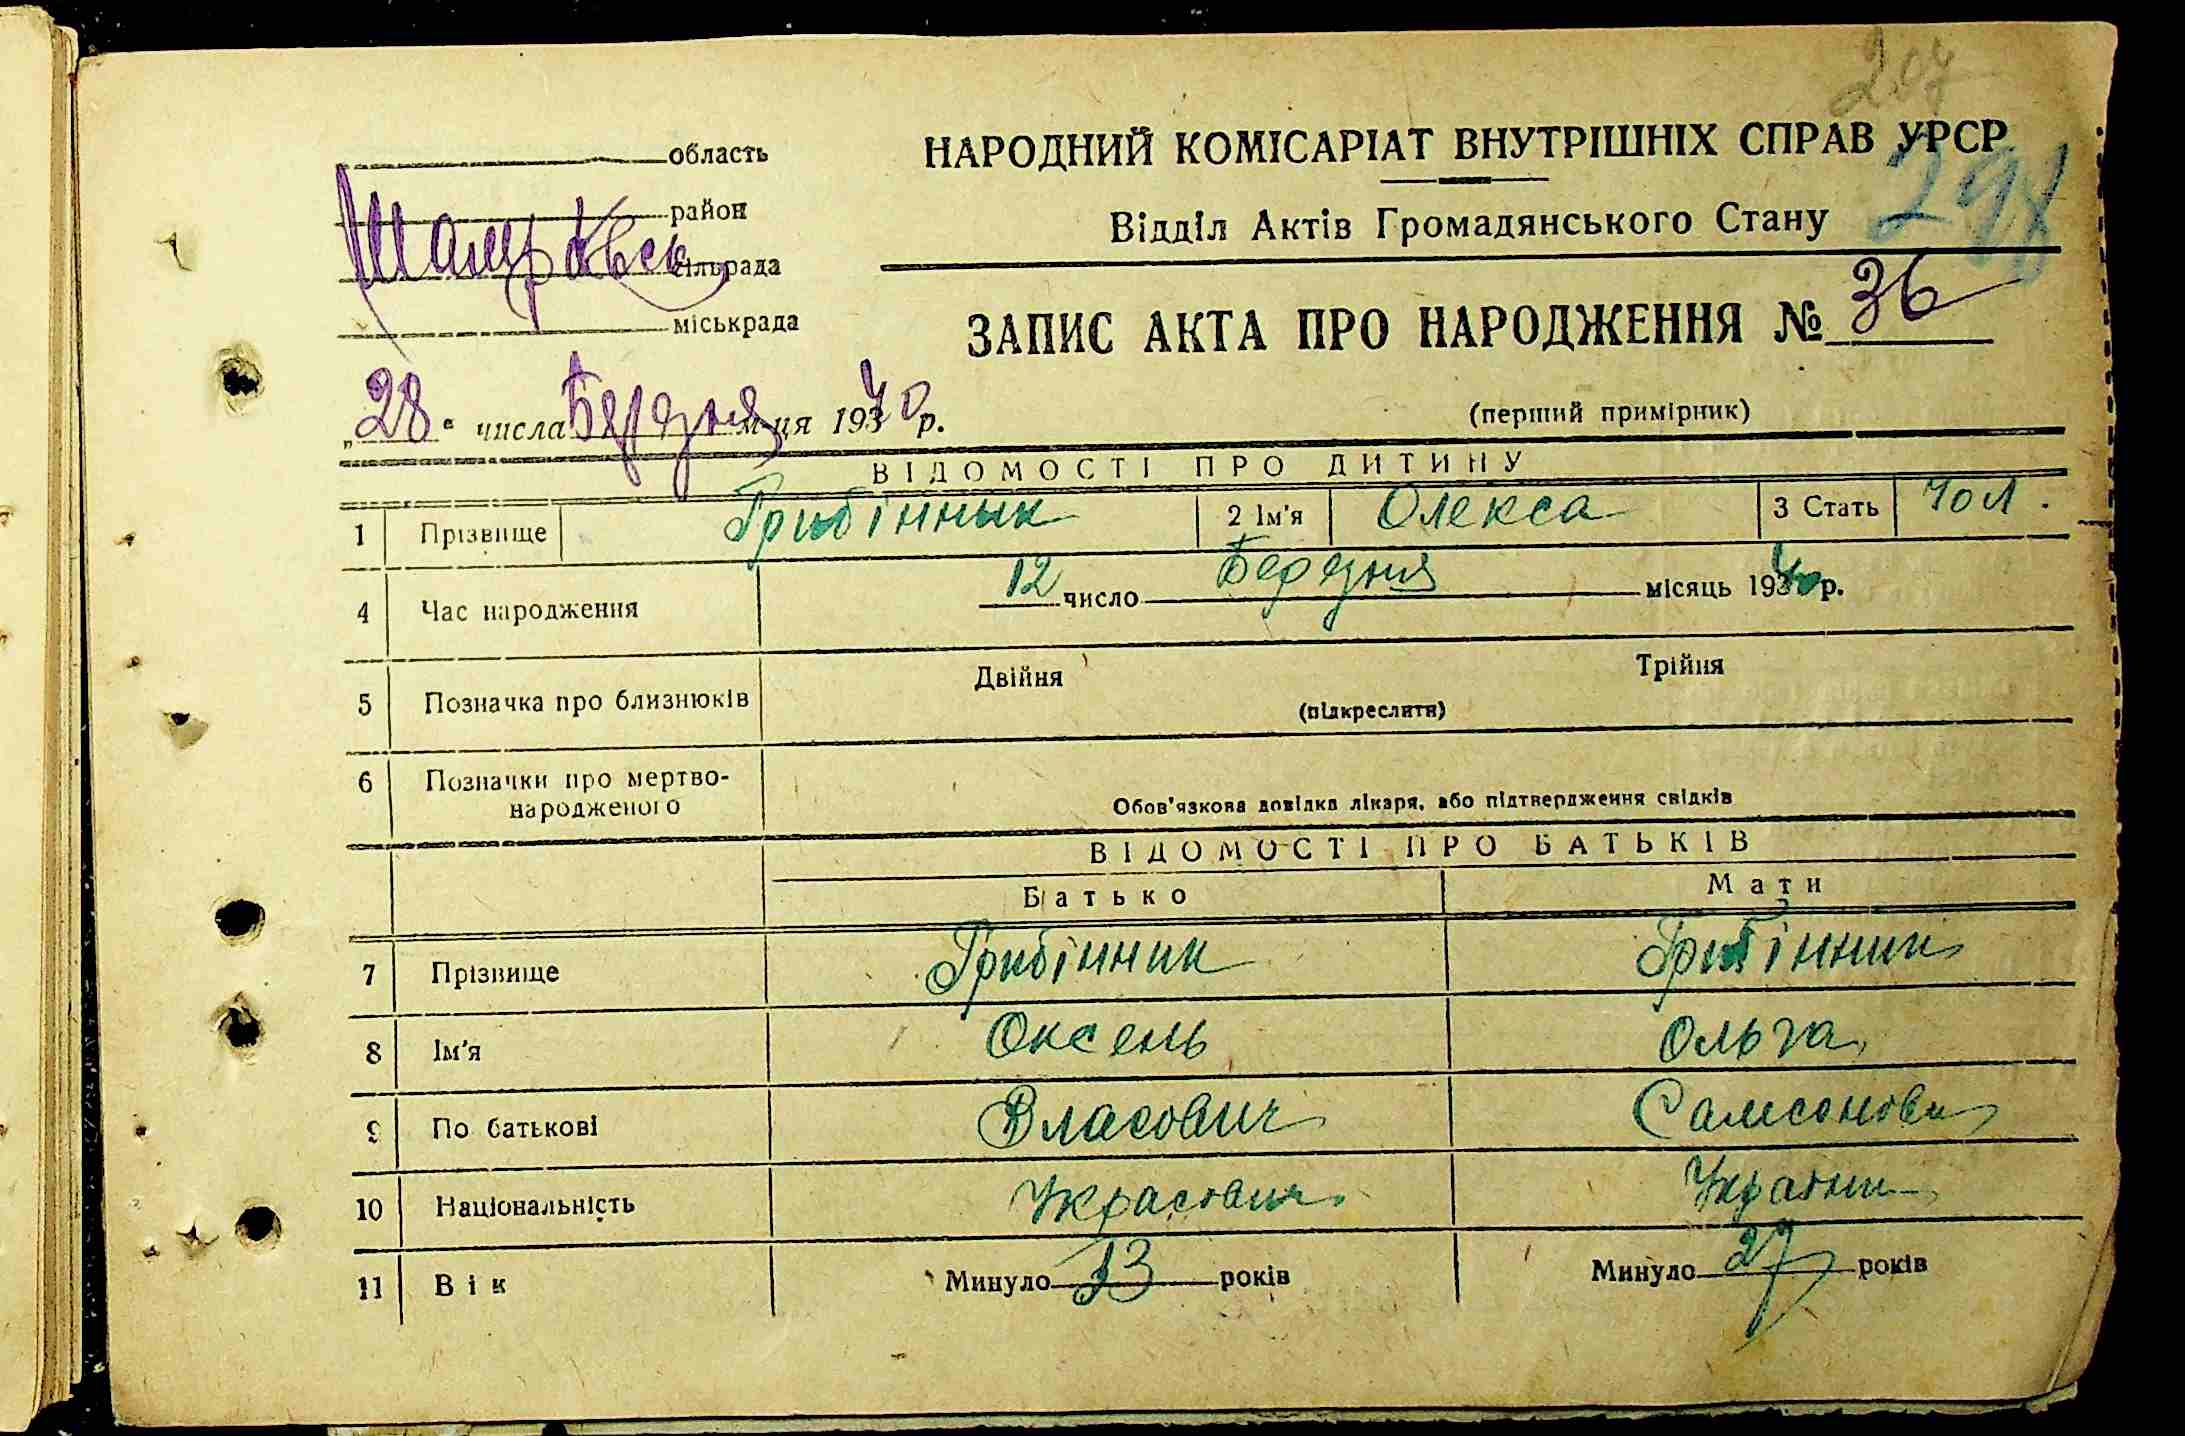 207
область
НАРОДНИЙ КОМІСАРІАТ ВНУТРІШНІХ СПРАВ УРСР
298
район
Відділ Актів Громадянського Стану
сільрада
міськрада
ЗАПИС АКТА ПРО НАРОДЖЕННЯ № 36
„28“ числа Березня м-ця 1940 р.
(перший примірник)
ВІДОМОСТІ ПРО ДИТИНУ
1 Прізвище Грибіннык 2 Ім'я Олекса 3 Стать Чол.
4 Час народження 12 число Березня місяць 1940 р.
5 Позначка про близнюків Двійня Трійня
(підкреслити)
6 Позначки про мертво-
народженого Обов'язкова довідка лікаря, або підтвердження свідків
ВІДОМОСТІ ПРО БАТЬКІВ
Батько Мати
7 Прізвище Грибінник Грибінник
8 Ім'я Оксень Ольга
9 По батькові Власович Самсоновн
10 Національність Украсович Украин
11 Вік Минуло 33 років Минуло 27 років